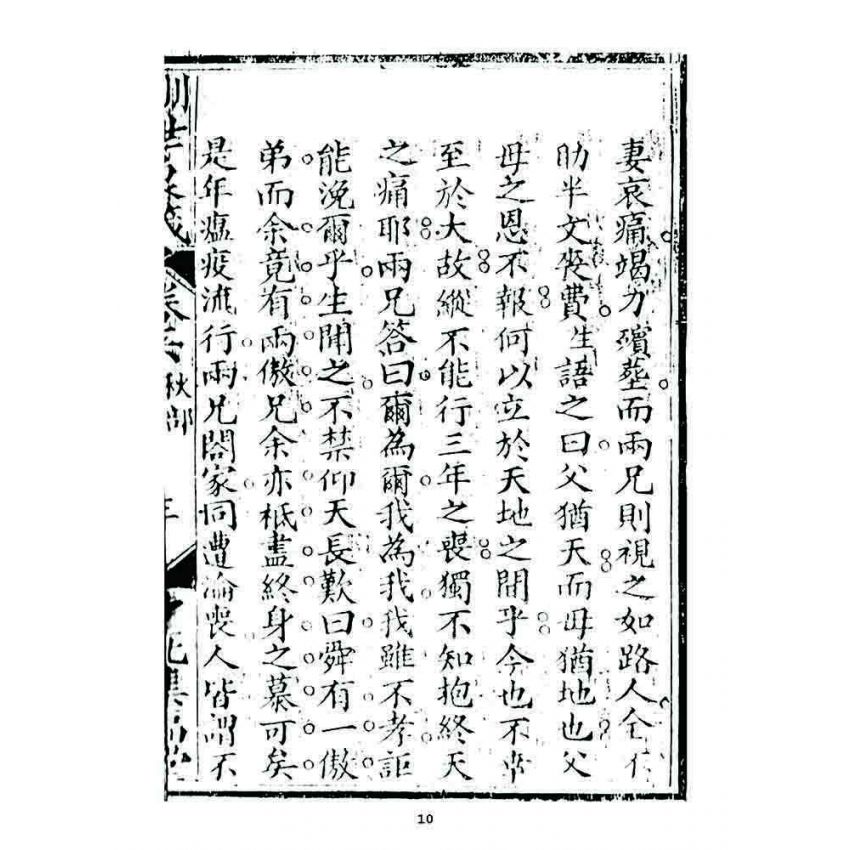 妻哀痛竭力殯塟而兩兄則視之如路人全不
助半文喪費生語之曰父猶天而母猶地也父
母之恩不報何以立於天地之間乎今也不幸
至於大故縱不能行三年之喪獨不知抱終天
之痛耶兩兄答曰爾為爾我為我我雖不孝詎
能浼爾乎生聞之不禁仰天長歎曰舜有一傲
弟而余竟有兩傲兄余亦秪盡終身之慕可矣
是年瘟疫流行兩兄閤家同遭淪喪人皆謂不
卷六 秋部
10